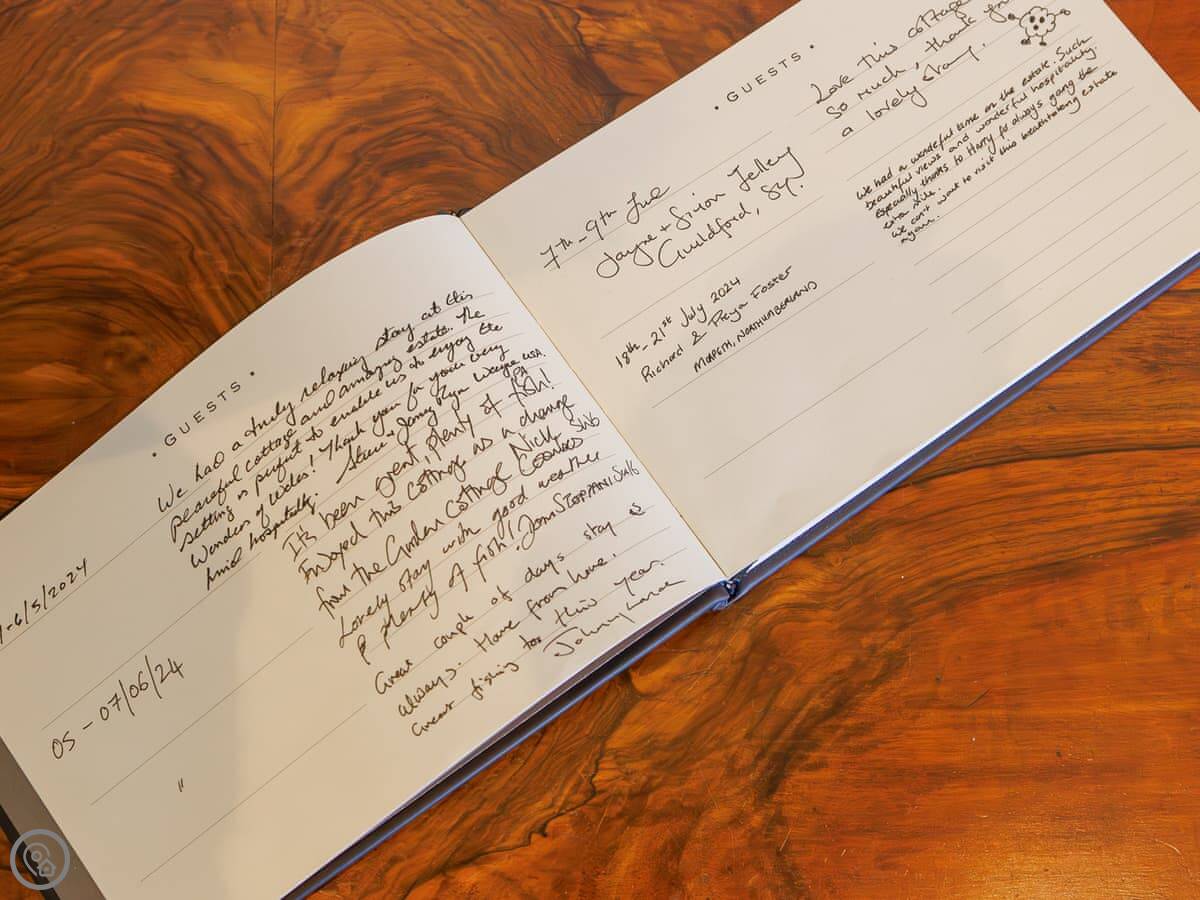 • GUESTS •
-6/5/2024
We had a truly relaxing stay at this
peaceful cottage and amazing estate. The
setting is perfect to enable us to enjoy the
Wonders of Wales! Thank you for your very
kind hospitality. Steve & Jenny Ryan Wayne PA USA.
05 - 07/06/24
Its been great, plenty of fish!
Enjoyed this cottage as a change
from the Garden Cottage Nick
Lovely stay with good weather
& plenty of fish!
"
Great couple of days stay as
always. Home from home.
Great fishing too this year.
Johnny
• GUESTS •
7th - 9th June
Jayne + Simon Jelley
Guildford, Sy.
Love this cottage
so much, thank you
a lovely stay.
18th - 21st July 2024
Richard & Priya Foster
MORPETH, NORTHUMBERLAND
We had a wonderful time on the estate. Such
beautiful views and wonderful hospitality.
Especially thanks to Harry for always going the
extra mile.
We can't wait to visit this breathtaking estate
again.